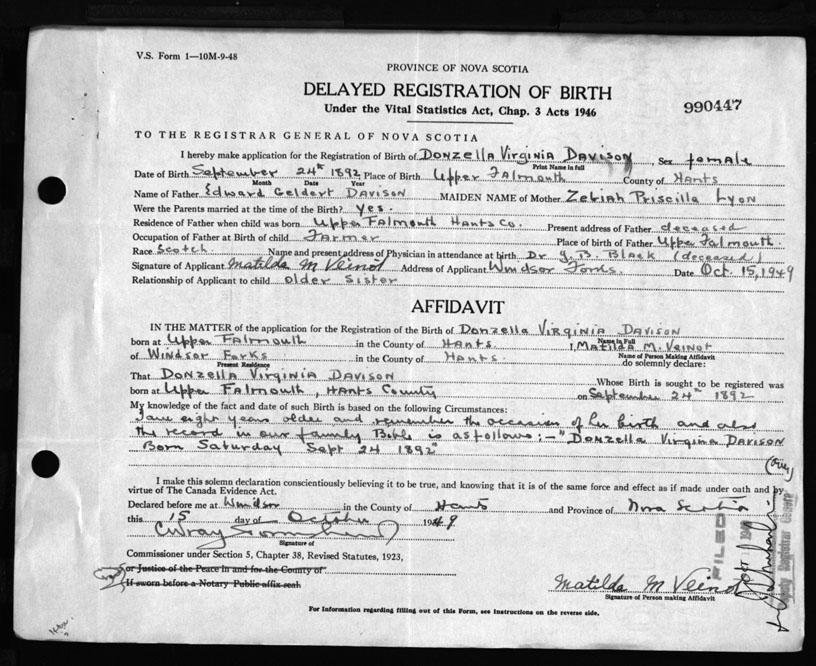 V.S. Form 1—10M-9-48
PROVINCE OF NOVA SCOTIA
DELAYED REGISTRATION OF BIRTH
Under the Vital Statistics Act, Chap. 3 Acts 1946
990447
TO THE REGISTRAR GENERAL OF NOVA SCOTIA
I hereby make application for the Registration of Birth of Donzella Virginia Davison, Sex female
Print Name in full
Date of Birth September 24th 1892, Place of Birth Upper Falmouth County of Hants
Month Date Year
Name of Father Edward Geldert Davison MAIDEN NAME of Mother Zebiah Priscilla Lyon
Were the Parents married at the time of the Birth? yes.
Residence of Father when child was born Upper Falmouth Hants Co. Present address of Father deceased
Occupation of Father at Birth of child Farmer Place of birth of Father Upper Falmouth.
Race Scotch Name and present address of Physician in attendance at birth Dr J. B. Black (deceased)
Signature of Applicant Matilda M Veinot Address of Applicant Windsor Forks. Date Oct. 15, 1949
Relationship of Applicant to child older sister
AFFIDAVIT
IN THE MATTER of the application for the Registration of the Birth of Donzella Virginia Davison
Name in Full
born at Upper Falmouth in the County of Hants I, Matilda M. Veinot
Name of Person Making Affidavit
of Windsor Forks in the County of Hants. do solemnly declare:
Present Residence
That Donzella Virginia Davison Whose Birth is sought to be registered was
born at Upper Falmouth, Hants County on September 24th 1892
My knowledge of the fact and date of such Birth is based on the following Circumstances:
I am eight years older and remember the occasion of her birth and also
the record in our family Bible is as follows:- "Donzella Virginia Davison
Born Saturday Sept 24 1892
(over)
I make this solemn declaration conscientiously believing it to be true, and knowing that it is of the same force and effect as if made under oath and by
virtue of The Canada Evidence Act.
Declared before me at Windsor in the County of Hants and Province of Nova Scotia
this 15 day of October 1949
Signature of
Commissioner under Section 5, Chapter 38, Revised Statutes, 1923,
or Justice of the Peace in and for the County of
If sworn before a Notary Public affix seal.
Matilda M Veinot
Signature of Person making Affidavit
FILED
Deputy Registrar General
For Information regarding filling out of this Form, see Instructions on the reverse side.